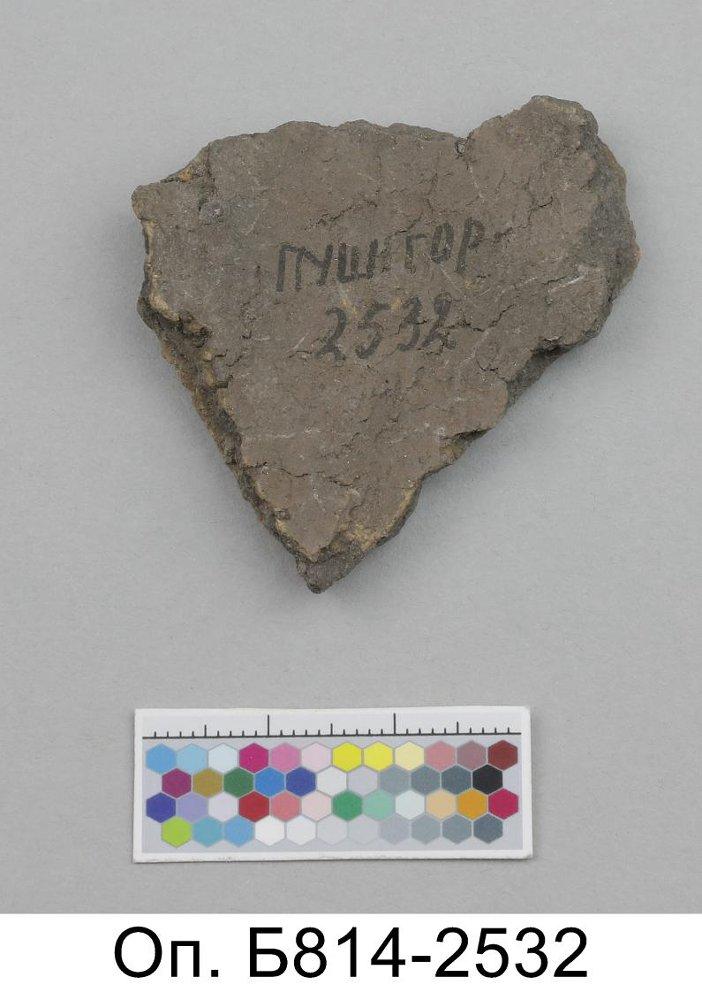 ПУШ ГОР
2532
Оп. Б814-2532